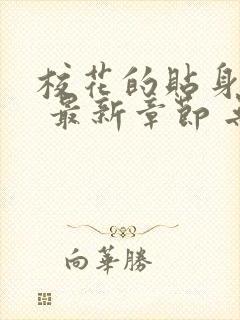 校花的貼身
最新章節
向華勝